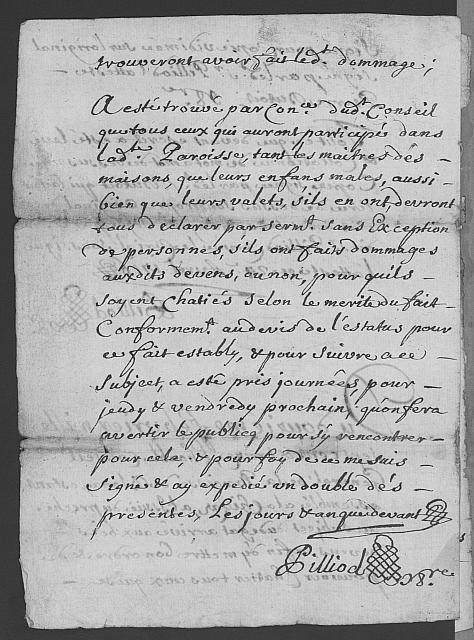 trouveront avoir fait led.t dommage;
A esté trouvé par Con.ce dud.t Conseil
que tous ceux qui auront participés dans
lad.te Paroisse, tant les maitres dés —
maisons, que leurs enfans males, aussi
bien que leurs valets, sils en ont, devront
tous declarer par serm.t sans Exception
de personnes, sils ont faits dommages
auxdits devens, ou non, pour quils —
soyent Chatiés selon le merite du fait
Conformem.t au devis de l'estatus pour
ce fait estably, & pour suivre a ce —
subject, a esté pris journées, pour —
jeudy & vendredy prochain, qu'on fera
avertir le publicq pour s'y rencontrer —
pour cela, & pour foy de ce me suis —
signé & ay expedié un double dés —
presentes, Les jours & an que devant
Pilliod